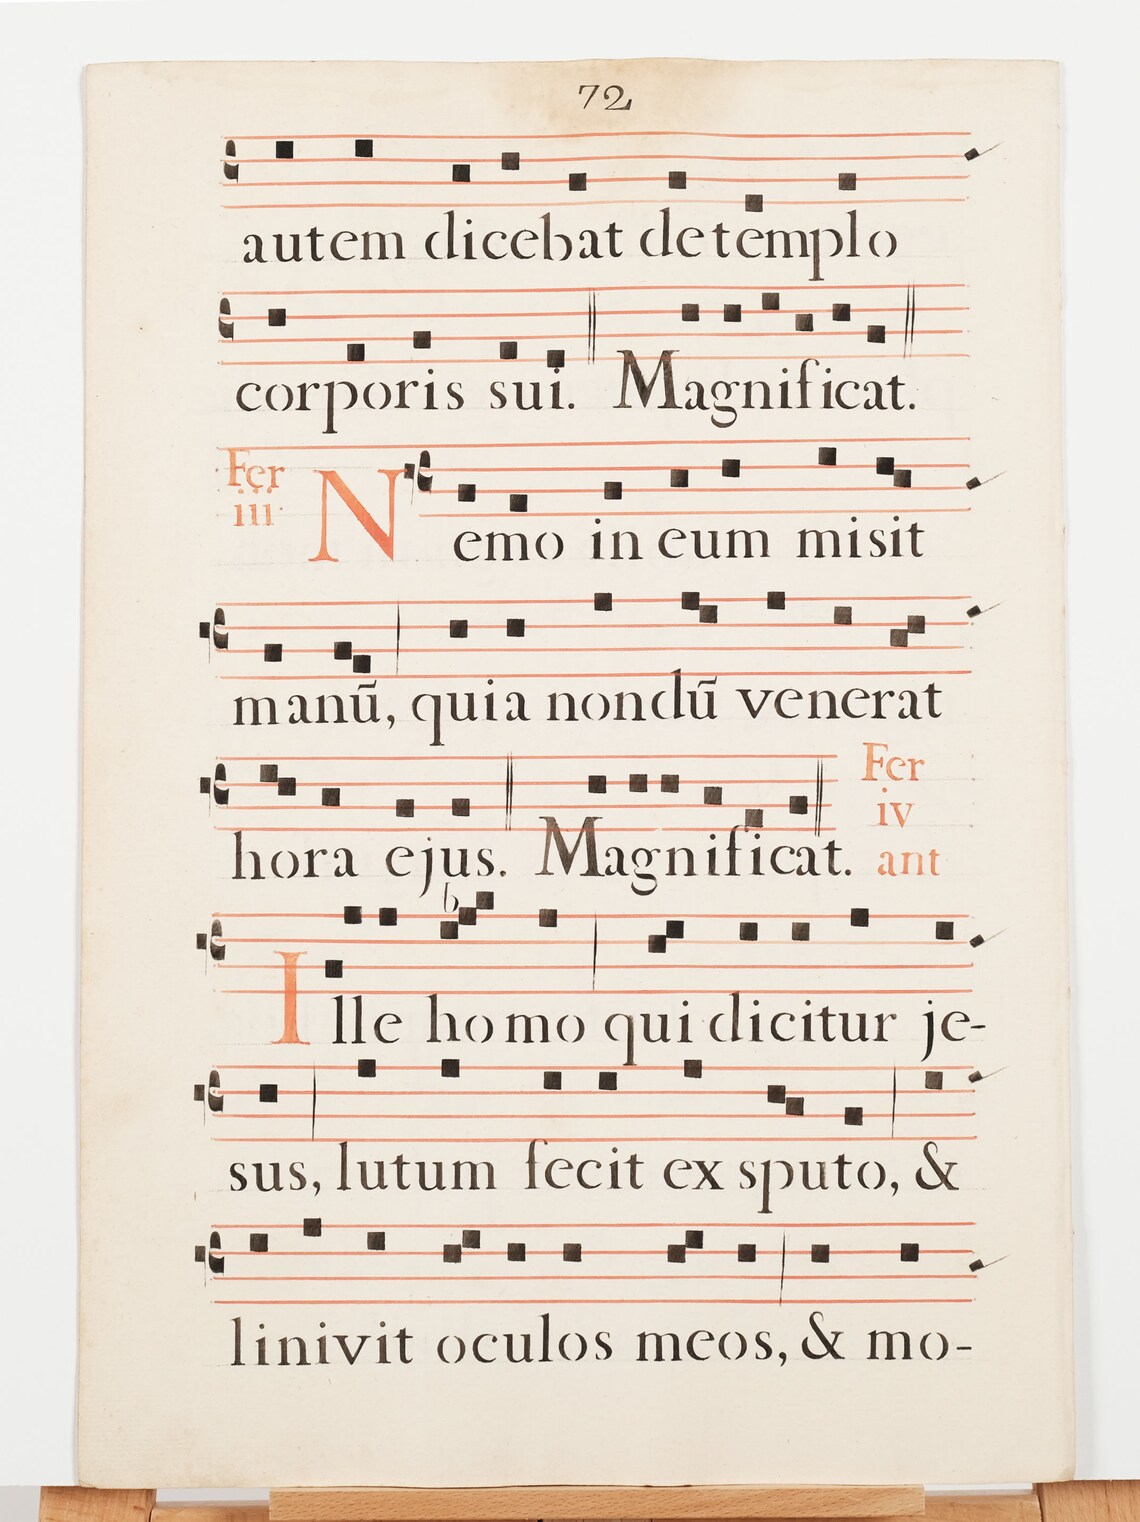 72
autem dicebat de templo
corporis sui. Magnificat.
Fer
iii
Nemo in eum misit
manū, quia nondū venerat
hora ejus. Magnificat.
Fer
iv
ant
b
Ille homo qui dicitur je-
sus, lutum fecit ex sputo, &
linivit oculos meos, & mo-